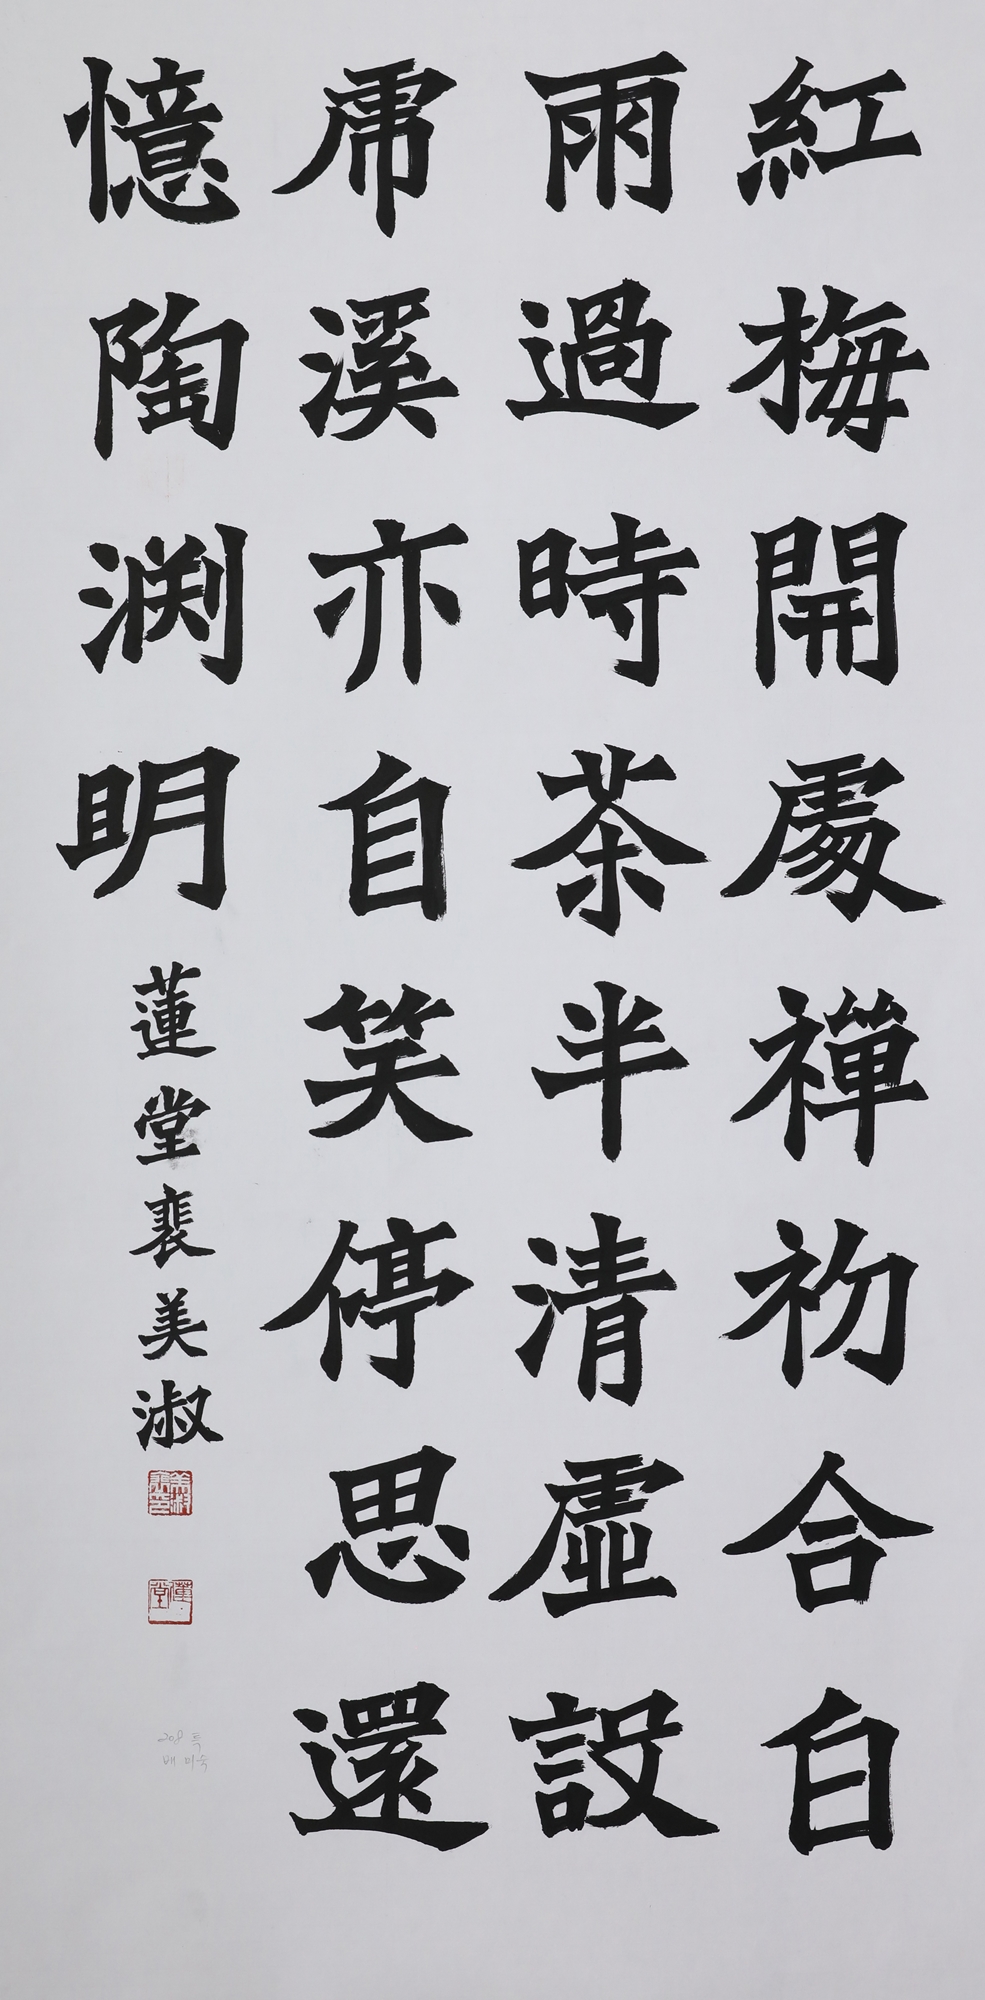 紅梅開處禪初合白
雨過時茶半清虛設
虎溪亦自笑停思還
憶陶渕明
蓮堂裵美淑
美淑裵印
蓮堂
208 특
배미숙